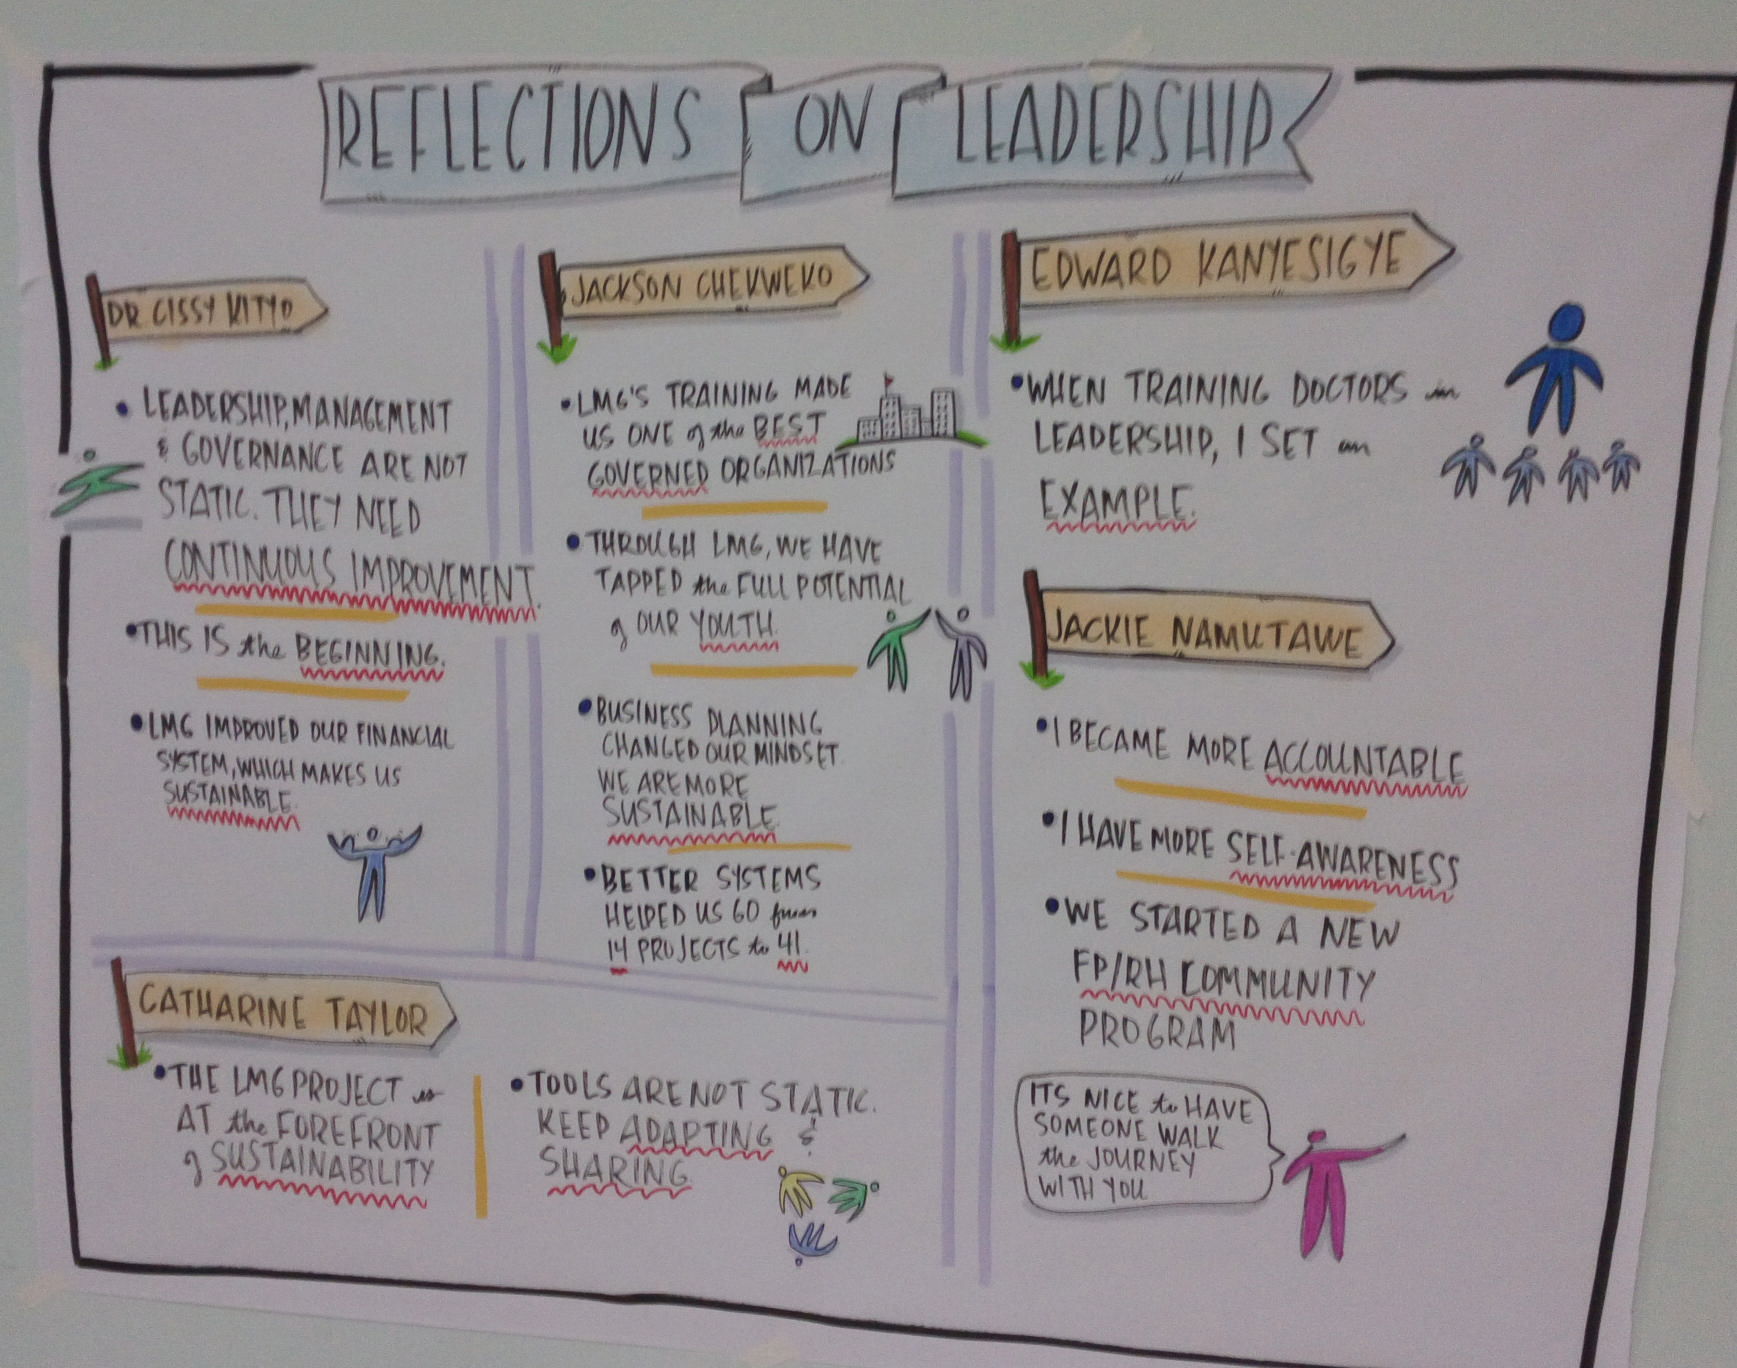 REFLECTIONS ON LEADERSHIP
DR. CISSY KITYO
• LEADERSHIP, MANAGEMENT
& GOVERNANCE ARE NOT
STATIC. THEY NEED
CONTINUOUS IMPROVEMENT.
• THIS IS the BEGINNING.
• LMG IMPROVED OUR FINANCIAL
SYSTEM, WHICH MAKES US
SUSTAINABLE.
JACKSON CHEKWEKO
• LMG'S TRAINING MADE
US ONE of the BEST
GOVERNED ORGANIZATIONS
• THROUGH LMG, WE HAVE
TAPPED the FULL POTENTIAL
of OUR YOUTH.
• BUSINESS PLANNING
CHANGED OUR MINDSET.
WE ARE MORE
SUSTAINABLE.
• BETTER SYSTEMS
HELPED US GO from
14 PROJECTS to 41.
EDWARD KANYESIGYE
• WHEN TRAINING DOCTORS in
LEADERSHIP, I SET an
EXAMPLE.
JACKIE NAMUTAWE
• I BECAME MORE ACCOUNTABLE
• I HAVE MORE SELF-AWARENESS
• WE STARTED A NEW
FP/RH COMMUNITY
PROGRAM
ITS NICE to HAVE
SOMEONE WALK
the JOURNEY
WITH YOU
CATHARINE TAYLOR
• THE LMG PROJECT is
AT the FOREFRONT
of SUSTAINABILITY
• TOOLS ARE NOT STATIC.
KEEP ADAPTING &
SHARING.